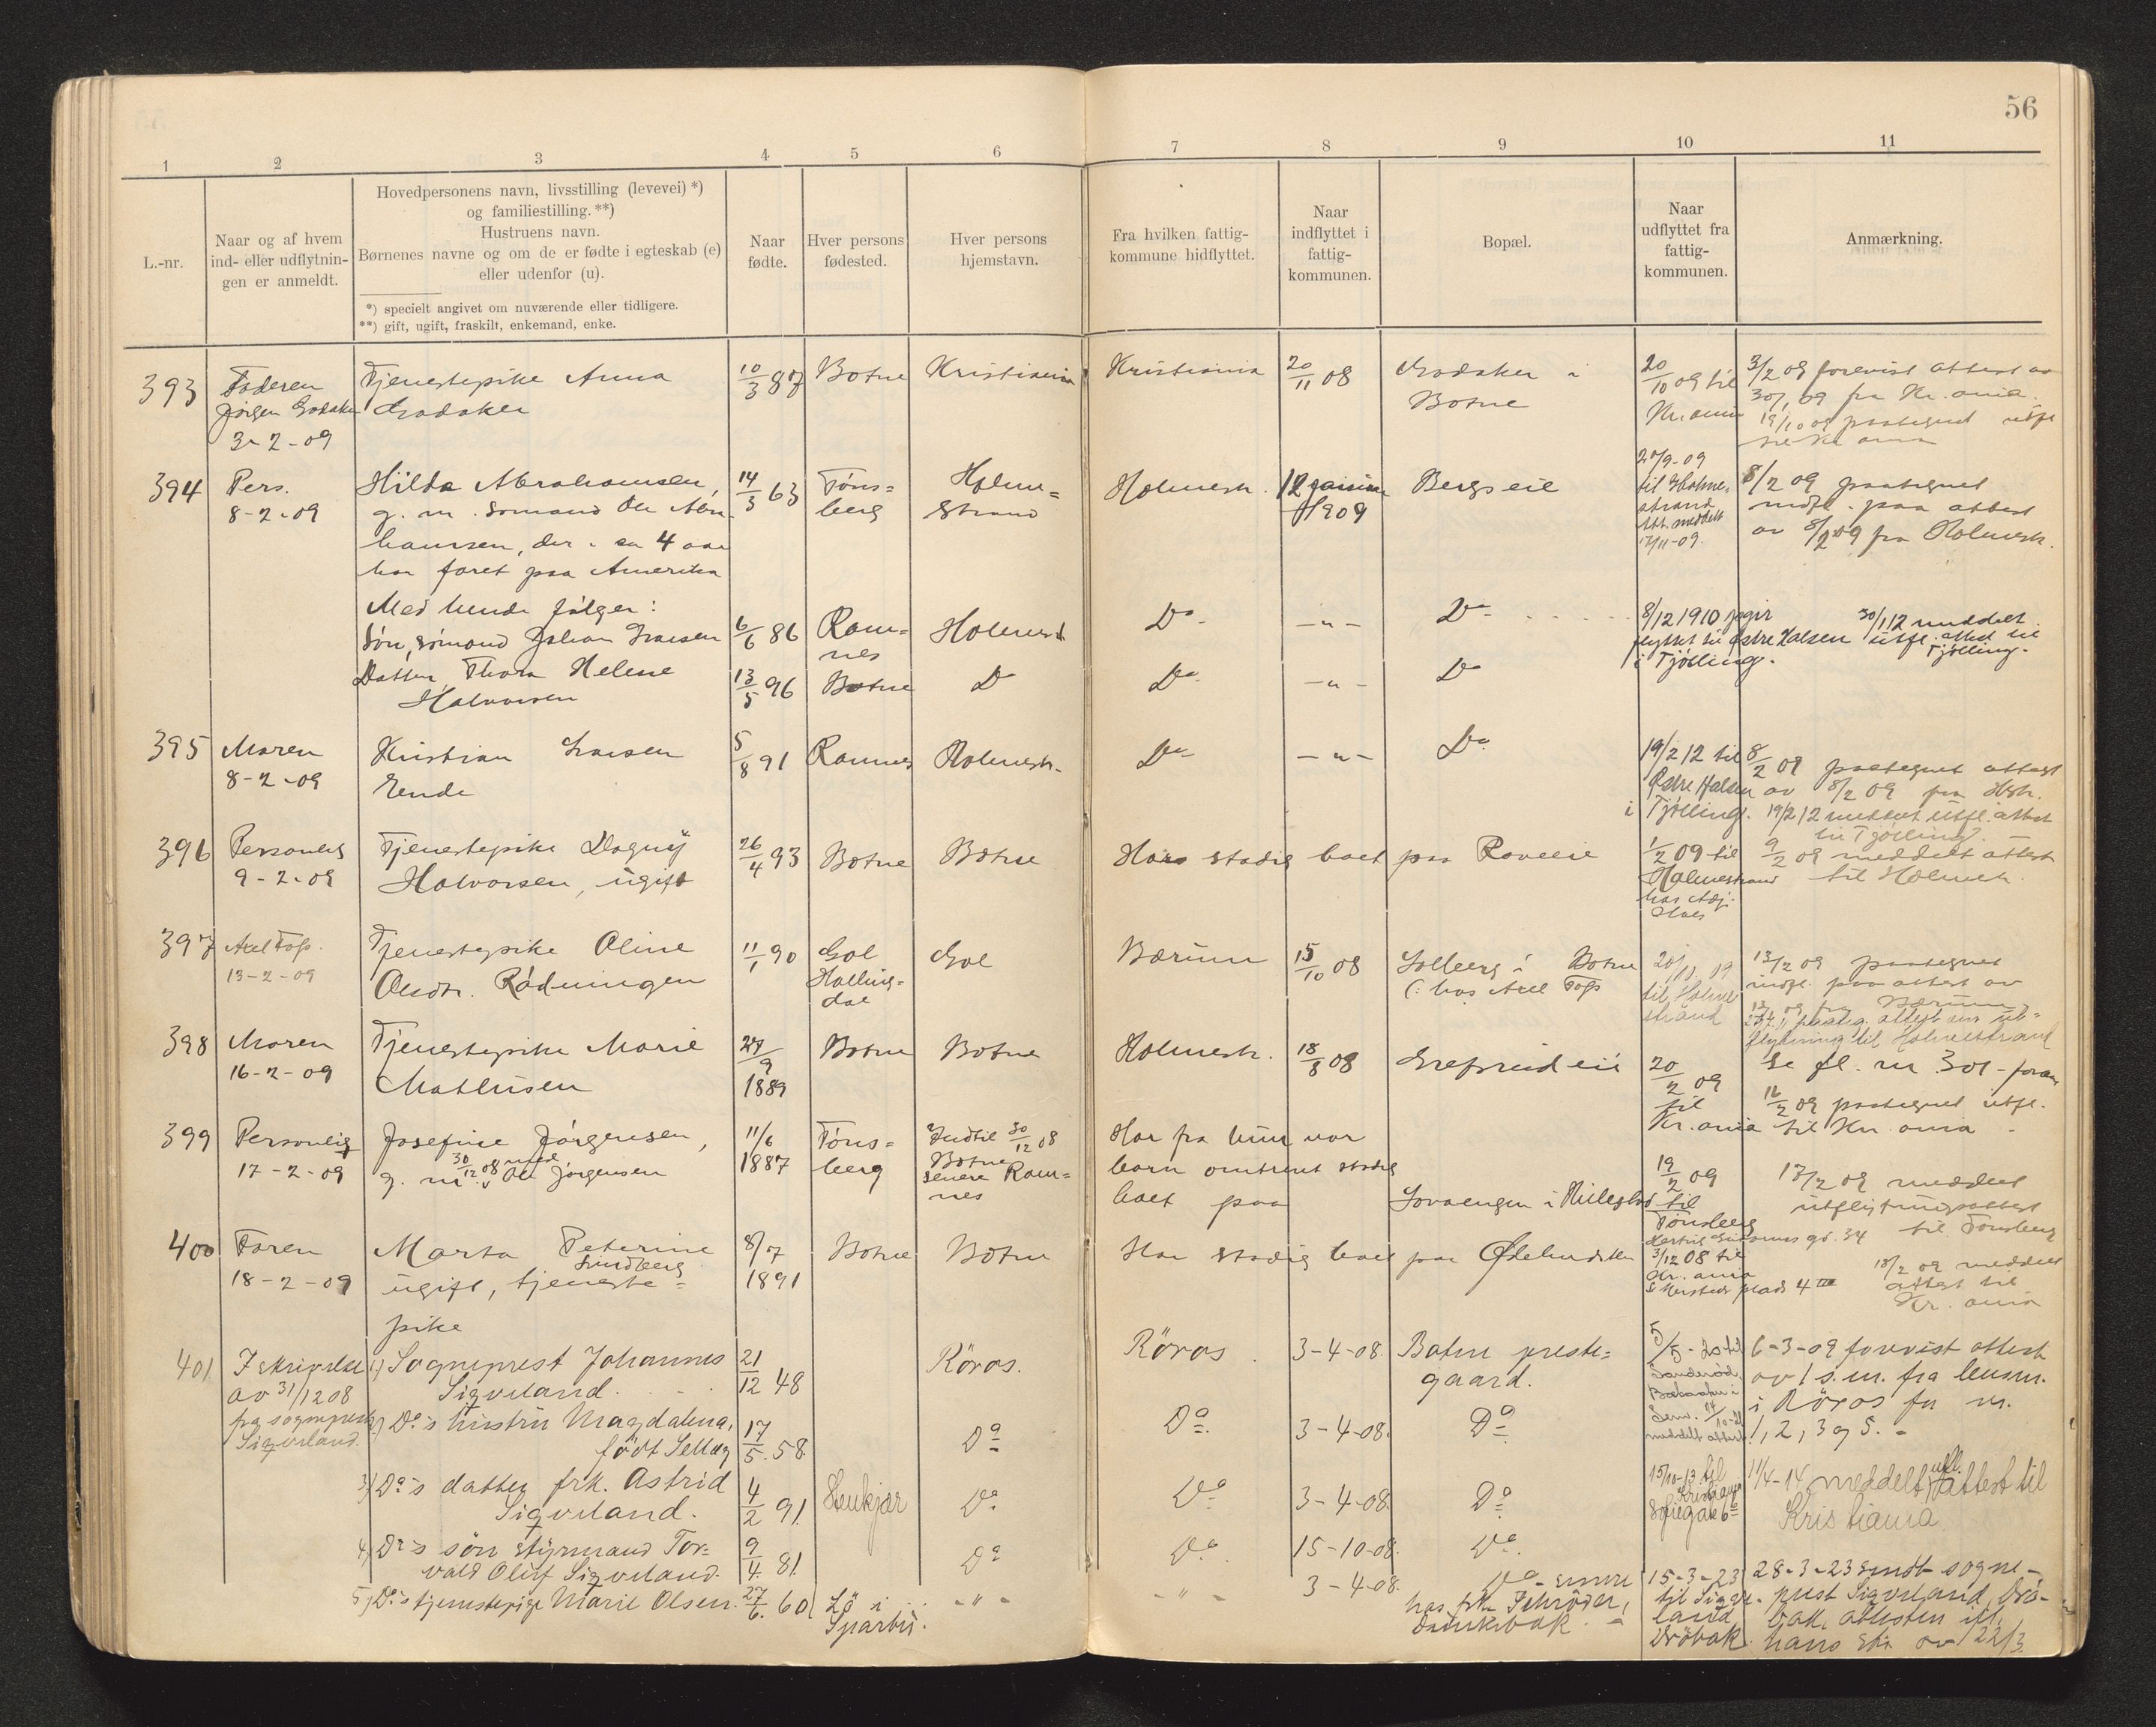 56
1 2 3 4 5 6 7 8 9 10 11
L.-nr.
Naar og af hvem
ind- eller udflytnin-
gen er anmeldt.
Hovedpersonens navn, livsstilling (levevei) *)
og familiestilling. **)
Hustruens navn.
Børnenes navne og om de er fødte i egteskab (e)
eller udenfor (u).
*) specielt angivet om nuværende eller tidligere.
**) gift, ugift, fraskilt, enkemand, enke.
Naar
fødte.
Hver persons
fødested.
Hver persons
hjemstavn.
Fra hvilken fattig-
kommune hidflyttet.
Naar
indflyttet i
fattig-
kommunen.
Bopæl.
Naar
udflyttet fra
fattig-
kommunen.
Anmærkning.
393
Faderen
Jørgen
3-2-09
Tjenestepike Anna
10/3 87
Botne
Kristiania
Kristiania
20/11 08
i
Botne
20/10 09 til
Kr.ania
3/2 09 forevist attest av
30/1 09 fra Kr.ania.
19/10 09 paategnet utfl
til Kr ania
394
Pers.
8-2-09
Hilda Abrahamsen,
g. m. sømand Ole Abra
hamsen, der i ca 4 aar
har faret paa Amerika
14/3 63
Tøns=
berg
Holme=
strand
Holmestr.
12 januar
1909
Bergseie
20/9-09
til Holme-
strand
Att. meddelt
17/11-09.
8/2 09 paategnet
indfl. paa attest
av 8/2 09 fra Holmestr.
Med hende følger:
Søn, sømand Johan Larsen
6/6 86
Ram=
nes
Holmestr
Do
-"-
Do
8/12 1910 pr
flyttet til østre Halsen
i Tjølling.
30/1 12 meddelt
utfl. attest til
Tjølling.
Datter Thora Helene
Halvorsen
13/5 96
Botne
Do
Do
-"-
Do
395
Moren
8-2-09
Kristian Larsen
Ende
5/8 91
Ramnes
Holmestr.
Do
-"-
Do
19/2 12 til
Østre Halsen
i Tjølling.
8/2 09 paategnet attest
av 8/2 09 fra Hstr.
19/2 12 meddelt utfl. attest
til Tjølling.
396
Personlig
9-2-09
Tjenestepike Dagny
Halvorsen, ugift
26/4 93
Botne
Botne
Har stadig boet paa Raveeie
1/2 09 til
Holmestrand
hos
9/2 09 meddelt attest
til Holmestr.
397
Axel Foss.
13-2-09
Tjenestepike Oline
Olsdtr. Rødningen
11/1 90
Gol
Halling=
dal
Gol
Bærum
15/10 08
Solberg i Botne
(: hos Axel Foss
20/11 09
til Holme
strand
13/2 09 paategnet
indfl. paa attest av
fra Bærum
paateg. attest om ut=
flytning til Holmestrand
398
Moren
16-2-09
Tjenestepike Marie
Mathisen
27/9
1889
Botne
Botne
Holmestr.
18/8 08
Grefsrud eie
20/2 09
til
Kr. ania
Se fl. nr 301 foran
16/2 09 paategnet utfl.
til Kr. ania
399
Personlig
17-2-09
Josefine Jørgensen,
g. m. 30/12 08 med Ole Jørgensen
11/6
1887
Tøns=
berg
Indtil 30/12 08
Botne
senere Ram=
nes
Har fra hun var
barn omtrent stadig
boet paa
Sorvengen i Hillestad
19/2 09
til
Tønsberg
17/2 09 meddelt
utflytningsattest
til Tønsberg
400
Faren
18-2-09
Marta Peterine
Lundberg
ugift, tjeneste=
pike
8/7
1891
Botne
Botne
Har stadig boet paa
3/12 08 til
Kr. ania
plads 4 III
18/2 09 meddelt
attest til
Kr. ania
401
I skrivelse
av 31/12 08
fra sogneprest
Sigveland.
1) Sogneprest Johannes
Sigveland.
21/12 48
Röros.
Röros
3-4-08.
Botne preste=
gaard.
5/5-20 til
Sanderød,
i
Sem.
meddelt attest
6-3-09 forevist attest
av 1 s.m. fra lensm.
i Röros for nr.
1, 2, 3 og 5. -
2) Do's hustru Magdalena,
født Selling
17/5 58.
Do
Do
3-4-08.
Do
3) Do's datter frk. Astrid
Sigveland.
4/2 91.
Stenkjær
Do
Do
3-4-08.
Do
15/10-13 til
Kristiania
Sofiegate 6
11/4-14 meddelt utfl. attest til
Kristiania
4) Do's søn styrmand Tor=
vald Oluf Sigveland.
9/4 81.
Do
Do.
15-10-08.
Do.
5) Do's tjenestepige Marie Olsen.
27/6. 60.
i
Sparbu.
- " -
- " -
3-4-08.
Do - senere
hos frk Schrøder,
15-3-23
til Sigve-
land,
Drøbak.
28-3-23 sendt sogne-
prest Sigveland, Drø-
bak, attesten ifl.
hans skr av 22/3.